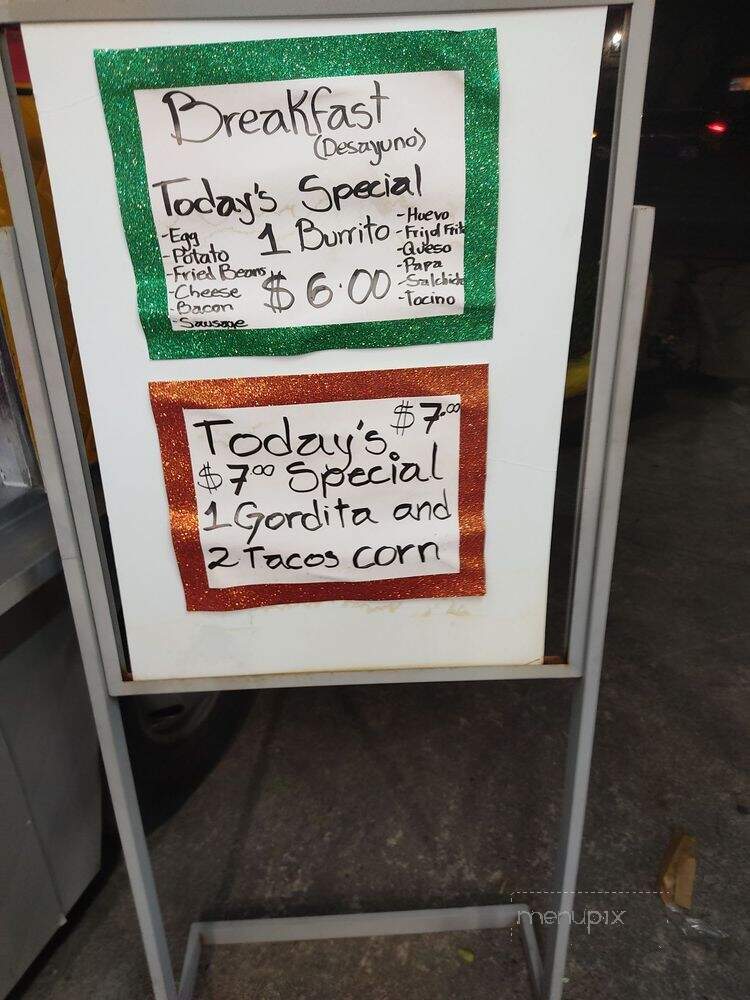 Breakfast
(Desayuno)
Today's Special
-Egg
-Potato
-Fried Beans
-Cheese
-Bacon
-Sausage
1 Burrito
$6.00
-Huevo
-Frijol Frit
-Queso
-Papa
-Salchich
-Tocino
Today's $7.00
$7.00 Special
1 Gordita and
2 Tacos corn
menupix